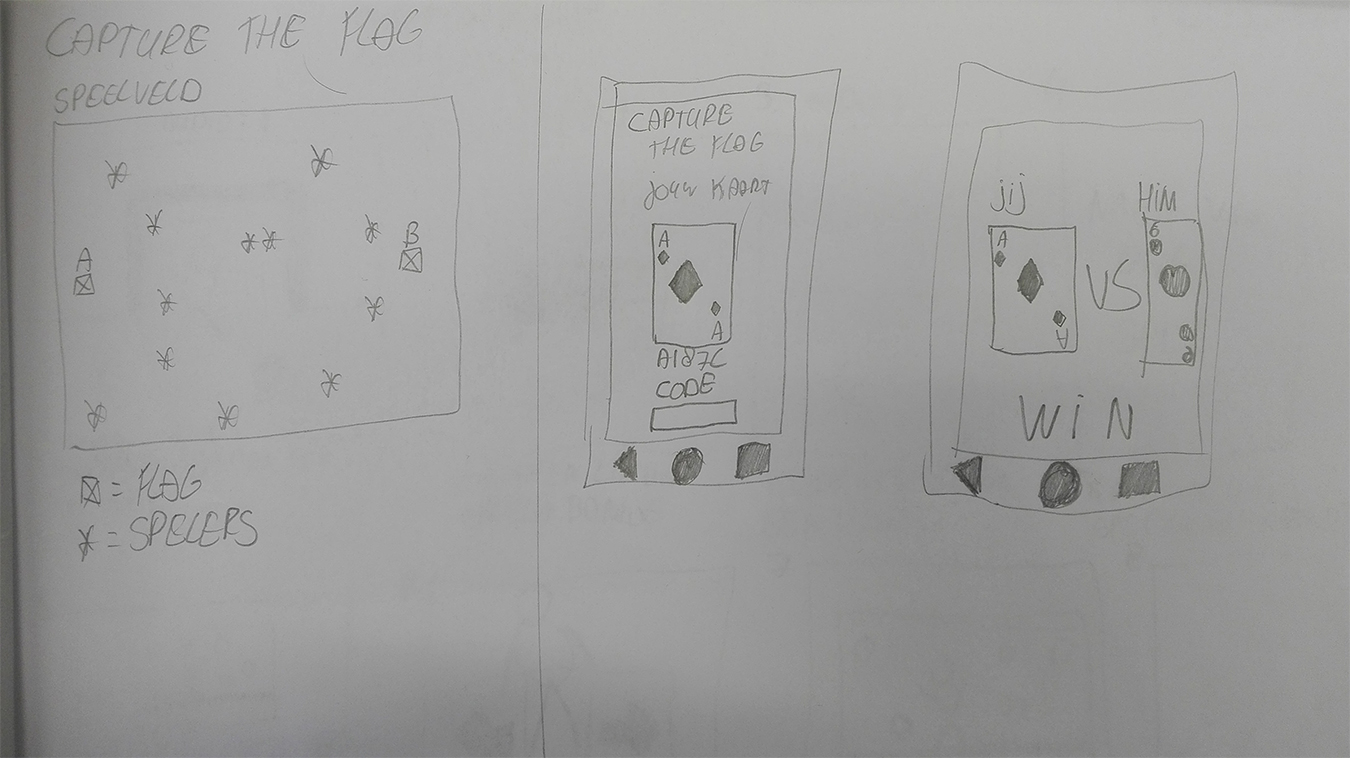 CAPTURE THE FLAG
SPEELVELD
A
B
= FLAG
= SPELERS
CAPTURE
THE FLAG
jouw KAART
A
A
A187C
CODE
jij
HiM
A
A
VS
6
6
WiN